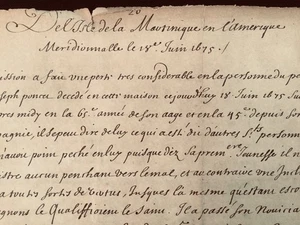 20
De L'Isle de la Martinique en L'amerique
Meridionnalle le 18.e Juin 1675./
ission a fait une perte tres considerable en la personne du pe
oseph ponce decedé en cette maison ce jourd'huy 18 Juin 1675 Sur
res midy en la 65.e année de son aage et en la 45.e depuis son
pagnie, il se peut dire de luy ce qui a est dit d'autres S.ts person
n'avoir poin peché en luy puisque dez sa prem.re Jeunesse il n
t aucun penchant vers le mal, et au contraire une Incl
a toutes sortes de vertus, Jusques la mesme qu'estant esco
gnons le Qualiffioient le saint. Il a passé son Noviria